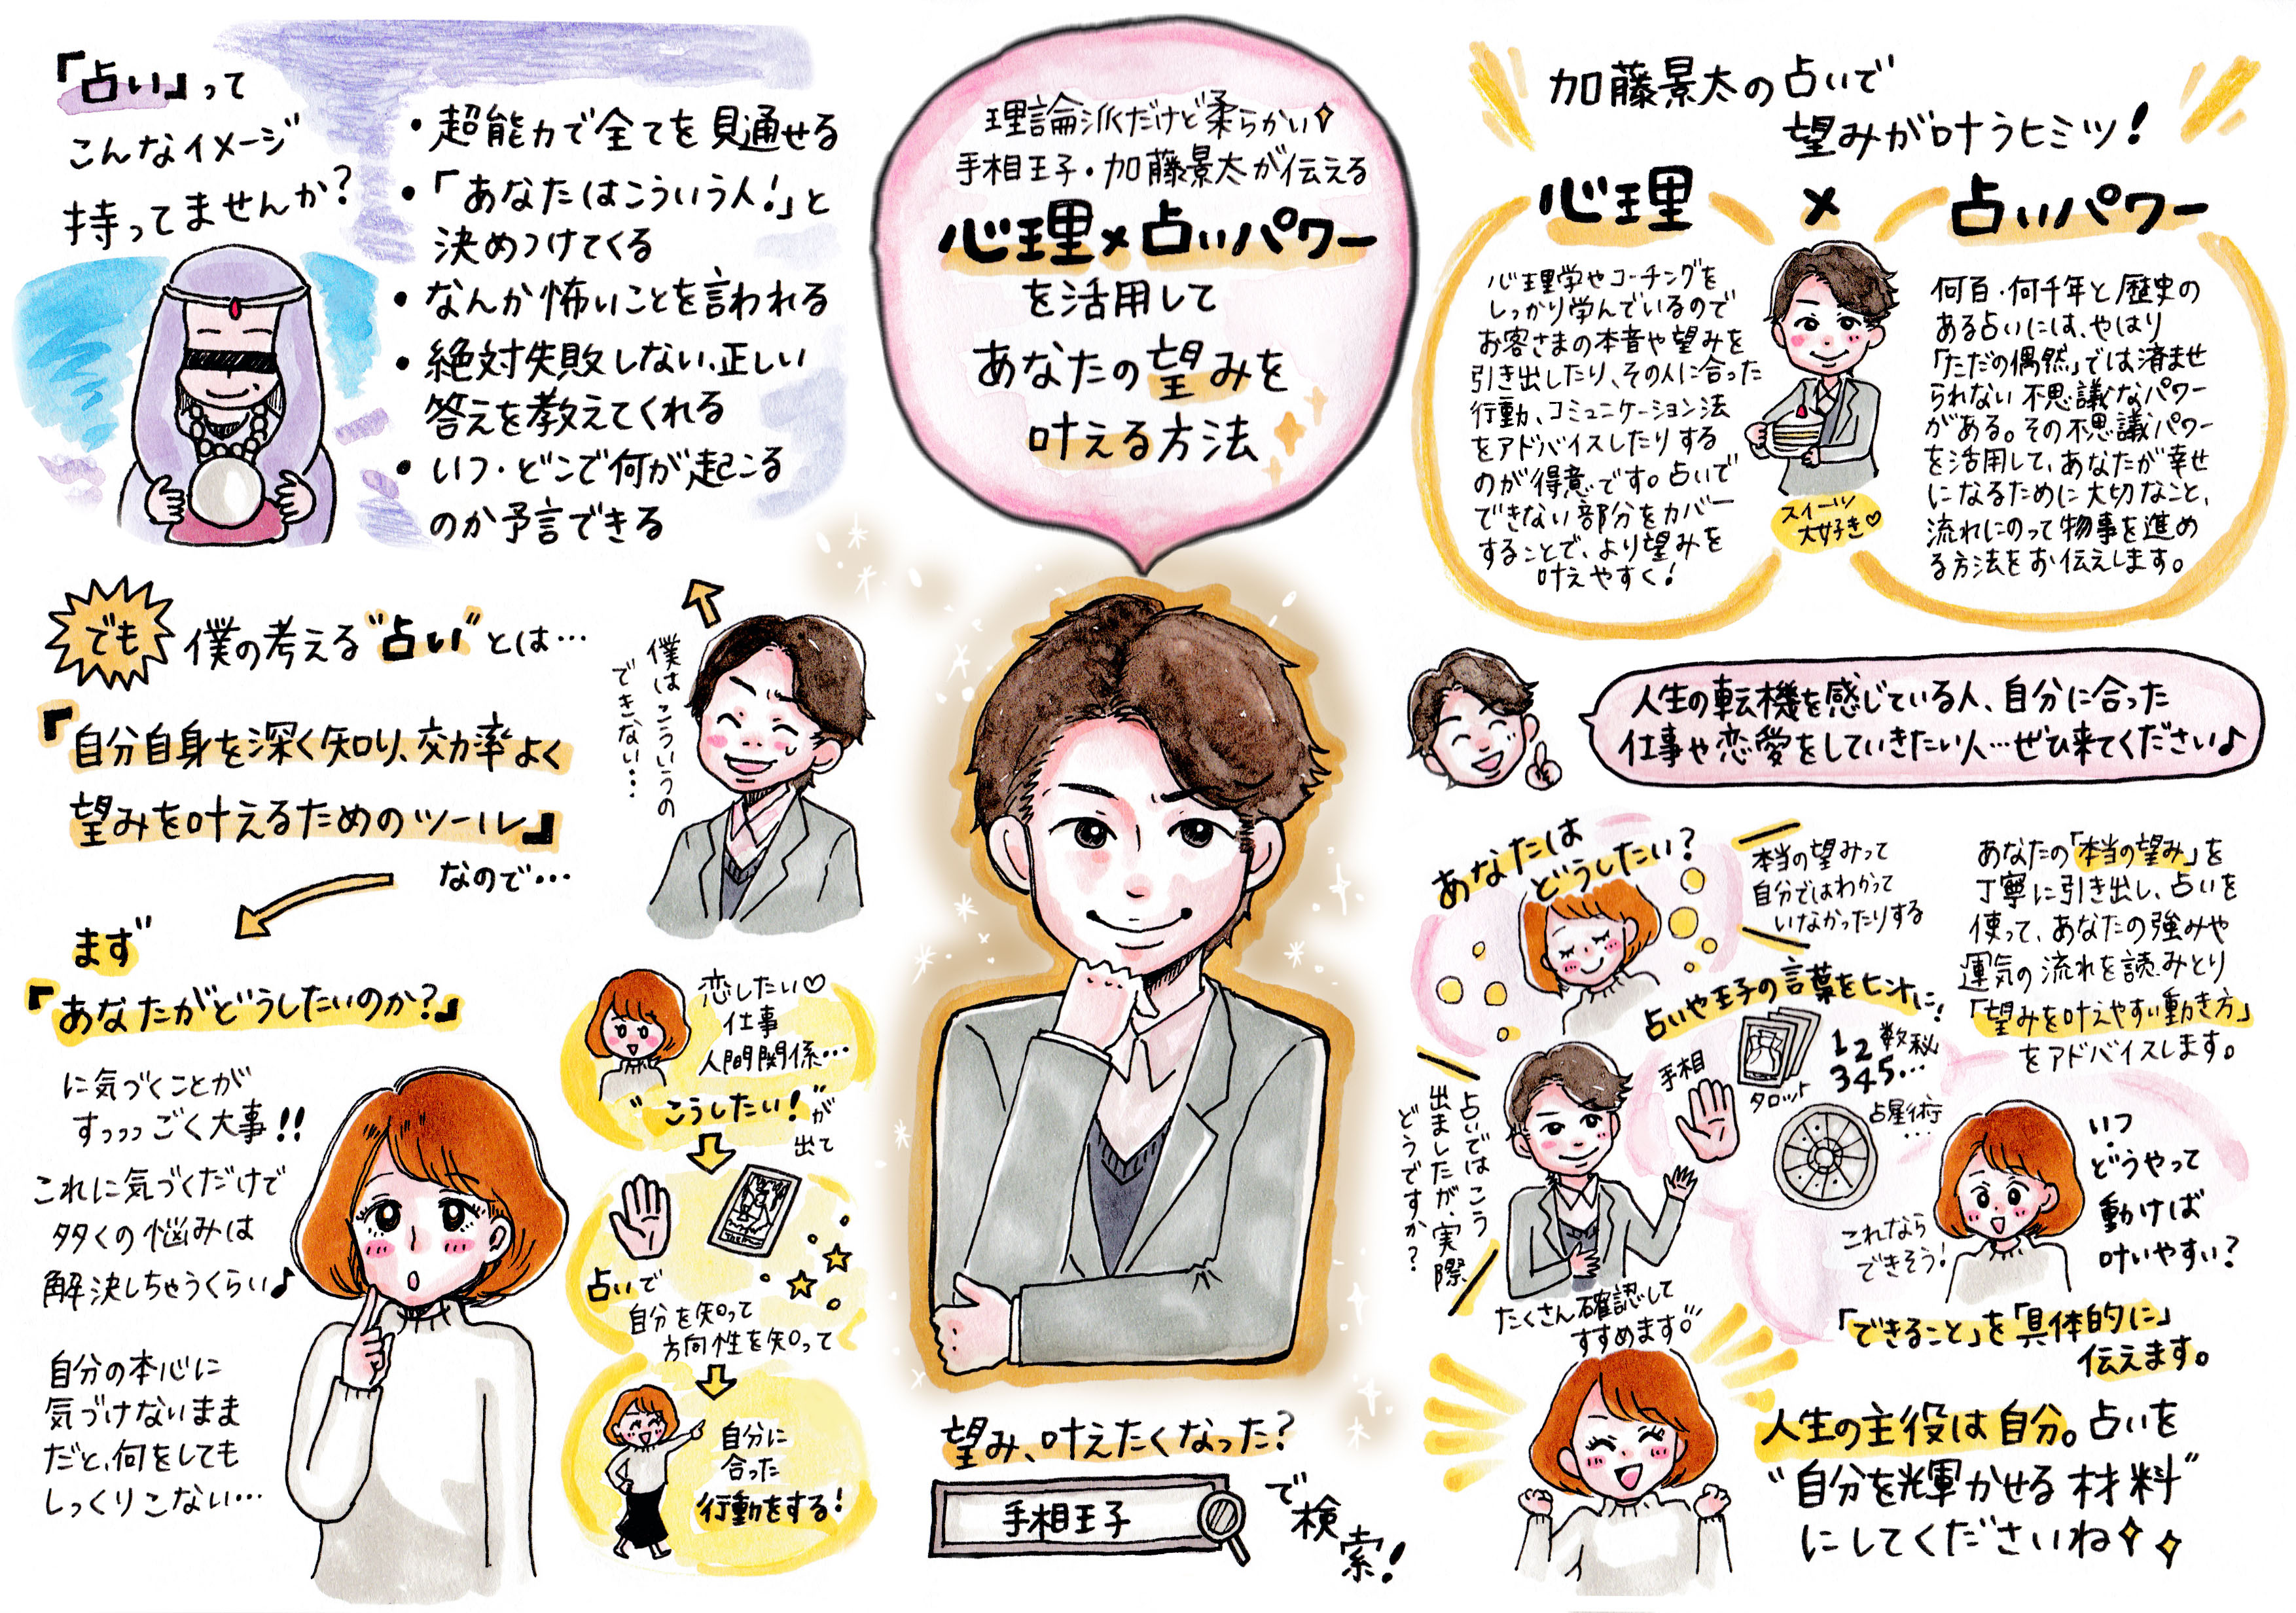 「占い」って
こんなイメージ
持ってませんか?
・超能力で全てを見通せる
・「あなたはこういう人!」と
決めつけてくる
・なんか怖いことを言われる
・絶対失敗しない、正しい
答えを教えてくれる
・いつ・どこで何が起こる
のか予言できる
僕はこういうの
できない…
でも 僕の考える“占い”とは…
『自分自身を深く知り、効率よく
望みを叶えるためのツール』
なので…
まず
『あなたがどうしたいのか?』
に気づくことが
すっっっごく大事!!
これに気づくだけで
多くの悩みは
解決しちゃうくらい♪
自分の本心に
気づけないまま
だと、何をしても
しっくりこない…
恋したい♡
仕事
人間関係…
“こうしたい!”が
出て
占いで
自分を知って
方向性を知って
自分に
合った
行動をする!
理論派だけど柔らかい✧
手相王子・加藤景太が伝える
心理×占いパワー
を活用して
あなたの望みを
叶える方法
望み、叶えたくなった?
手相王子
で検索!
加藤景太の占いで
望みが叶うヒミツ!
心理 × 占いパワー
心理学やコーチングを
しっかり学んでいるので
お客さまの本音や望みを
引き出したり、その人に合った
行動、コミュニケーション法
をアドバイスしたりする
のが得意です。占いで
できない部分をカバー
することで、より望みを
叶えやすく!
スイーツ
大好き♡
何百・何千年と歴史の
ある占いには、やはり
「ただの偶然」では済ませ
られない不思議なパワー
がある。その不思議パワー
を活用して、あなたが幸せ
になるために大切なこと、
流れにのって物事を進め
る方法をお伝えします。
人生の転機を感じている人、自分に合った
仕事や恋愛をしていきたい人…ぜひ来てください♪
あなたは
どうしたい?
本当の望みって
自分ではわかって
いなかったりする
占いや王子の言葉をヒントに!
手相
タロット
1 2 数秘
3 4 5…
占星術
…
占いではこう
出ましたが、実際
どうですか?
たくさん確認して
すすめます
あなたの「本当の望み」を
丁寧に引き出し、占いを
使って、あなたの強みや
運気の流れを読みとり
「望みを叶えやすい動き方」
をアドバイスします。
これなら
できそう!
いつ
どうやって
動けば
叶いやすい?
「できること」を「具体的に」
伝えます。
人生の主役は自分。占いを
“自分を輝かせる材料”
にしてくださいね✧✧